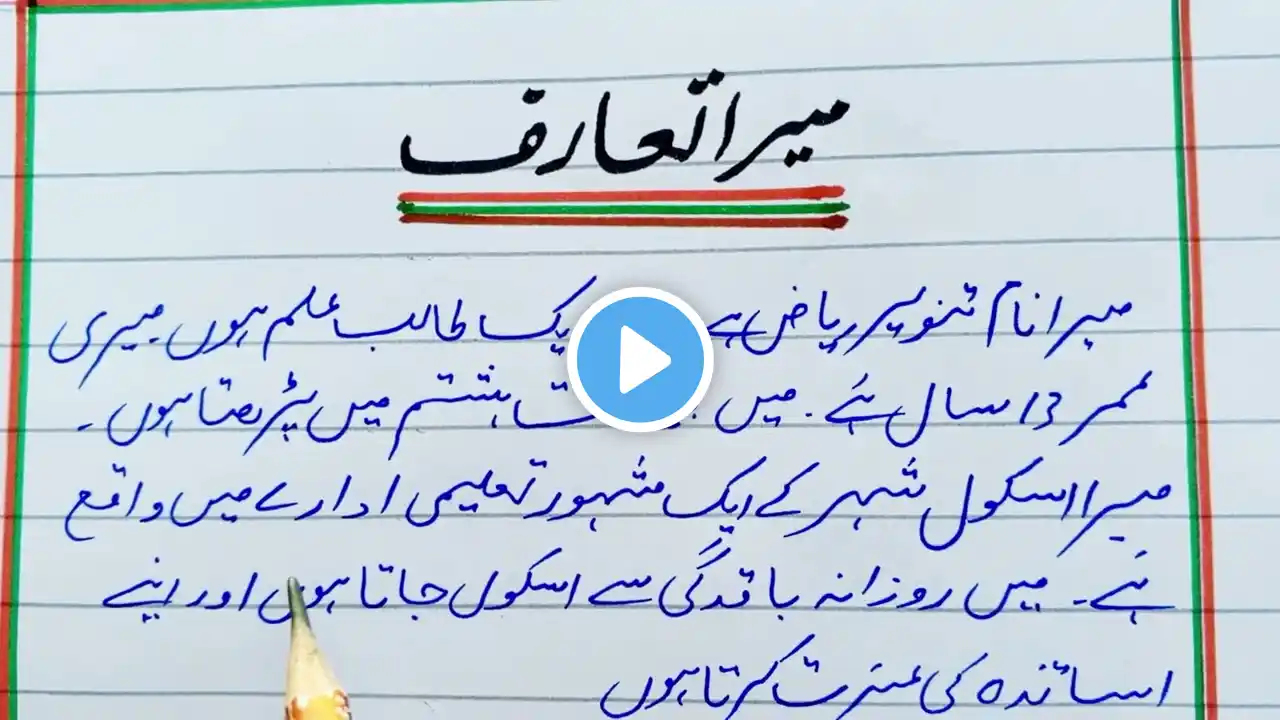 میرا تعارف
میرا نام تنویر ریاض ہے ایک طالب علم ہوں۔ میری
عمر 13 سال ہے۔ میں ہشتم میں پڑھتا ہوں۔
میرا اسکول شہر کے ایک مشہور تعلیمی ادارے میں واقع
ہے۔ میں روزانہ باقدگی سے اسکول جاتا ہوں اور اپنے
اساتذہ کی عزت کرتا ہوں